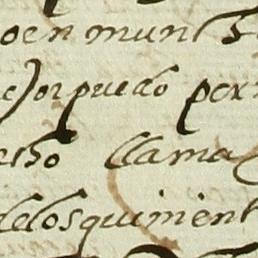 oen mun
e)or puedo per
esto llama
delos quinient